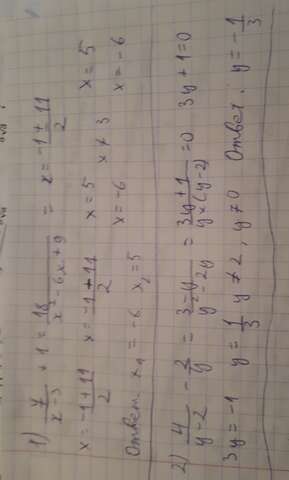 1) 7/(x-3) + 1 = 18/(x²-6x+9) = x = (-1±11)/2
x = (-1±11)/2 x = (-1±11)/2 x=5 x≠3 x=5
x=-6 x=-6
Ответ x₁=-6 x₂=5
2) 4/(y-2) - 2/y = (3-y)/(y²-2y) = (3y+1)/(y×(y-2)) =0 3y+1=0
3y=-1 y=1/3 y≠2, y≠0 Ответ: y=-1/3